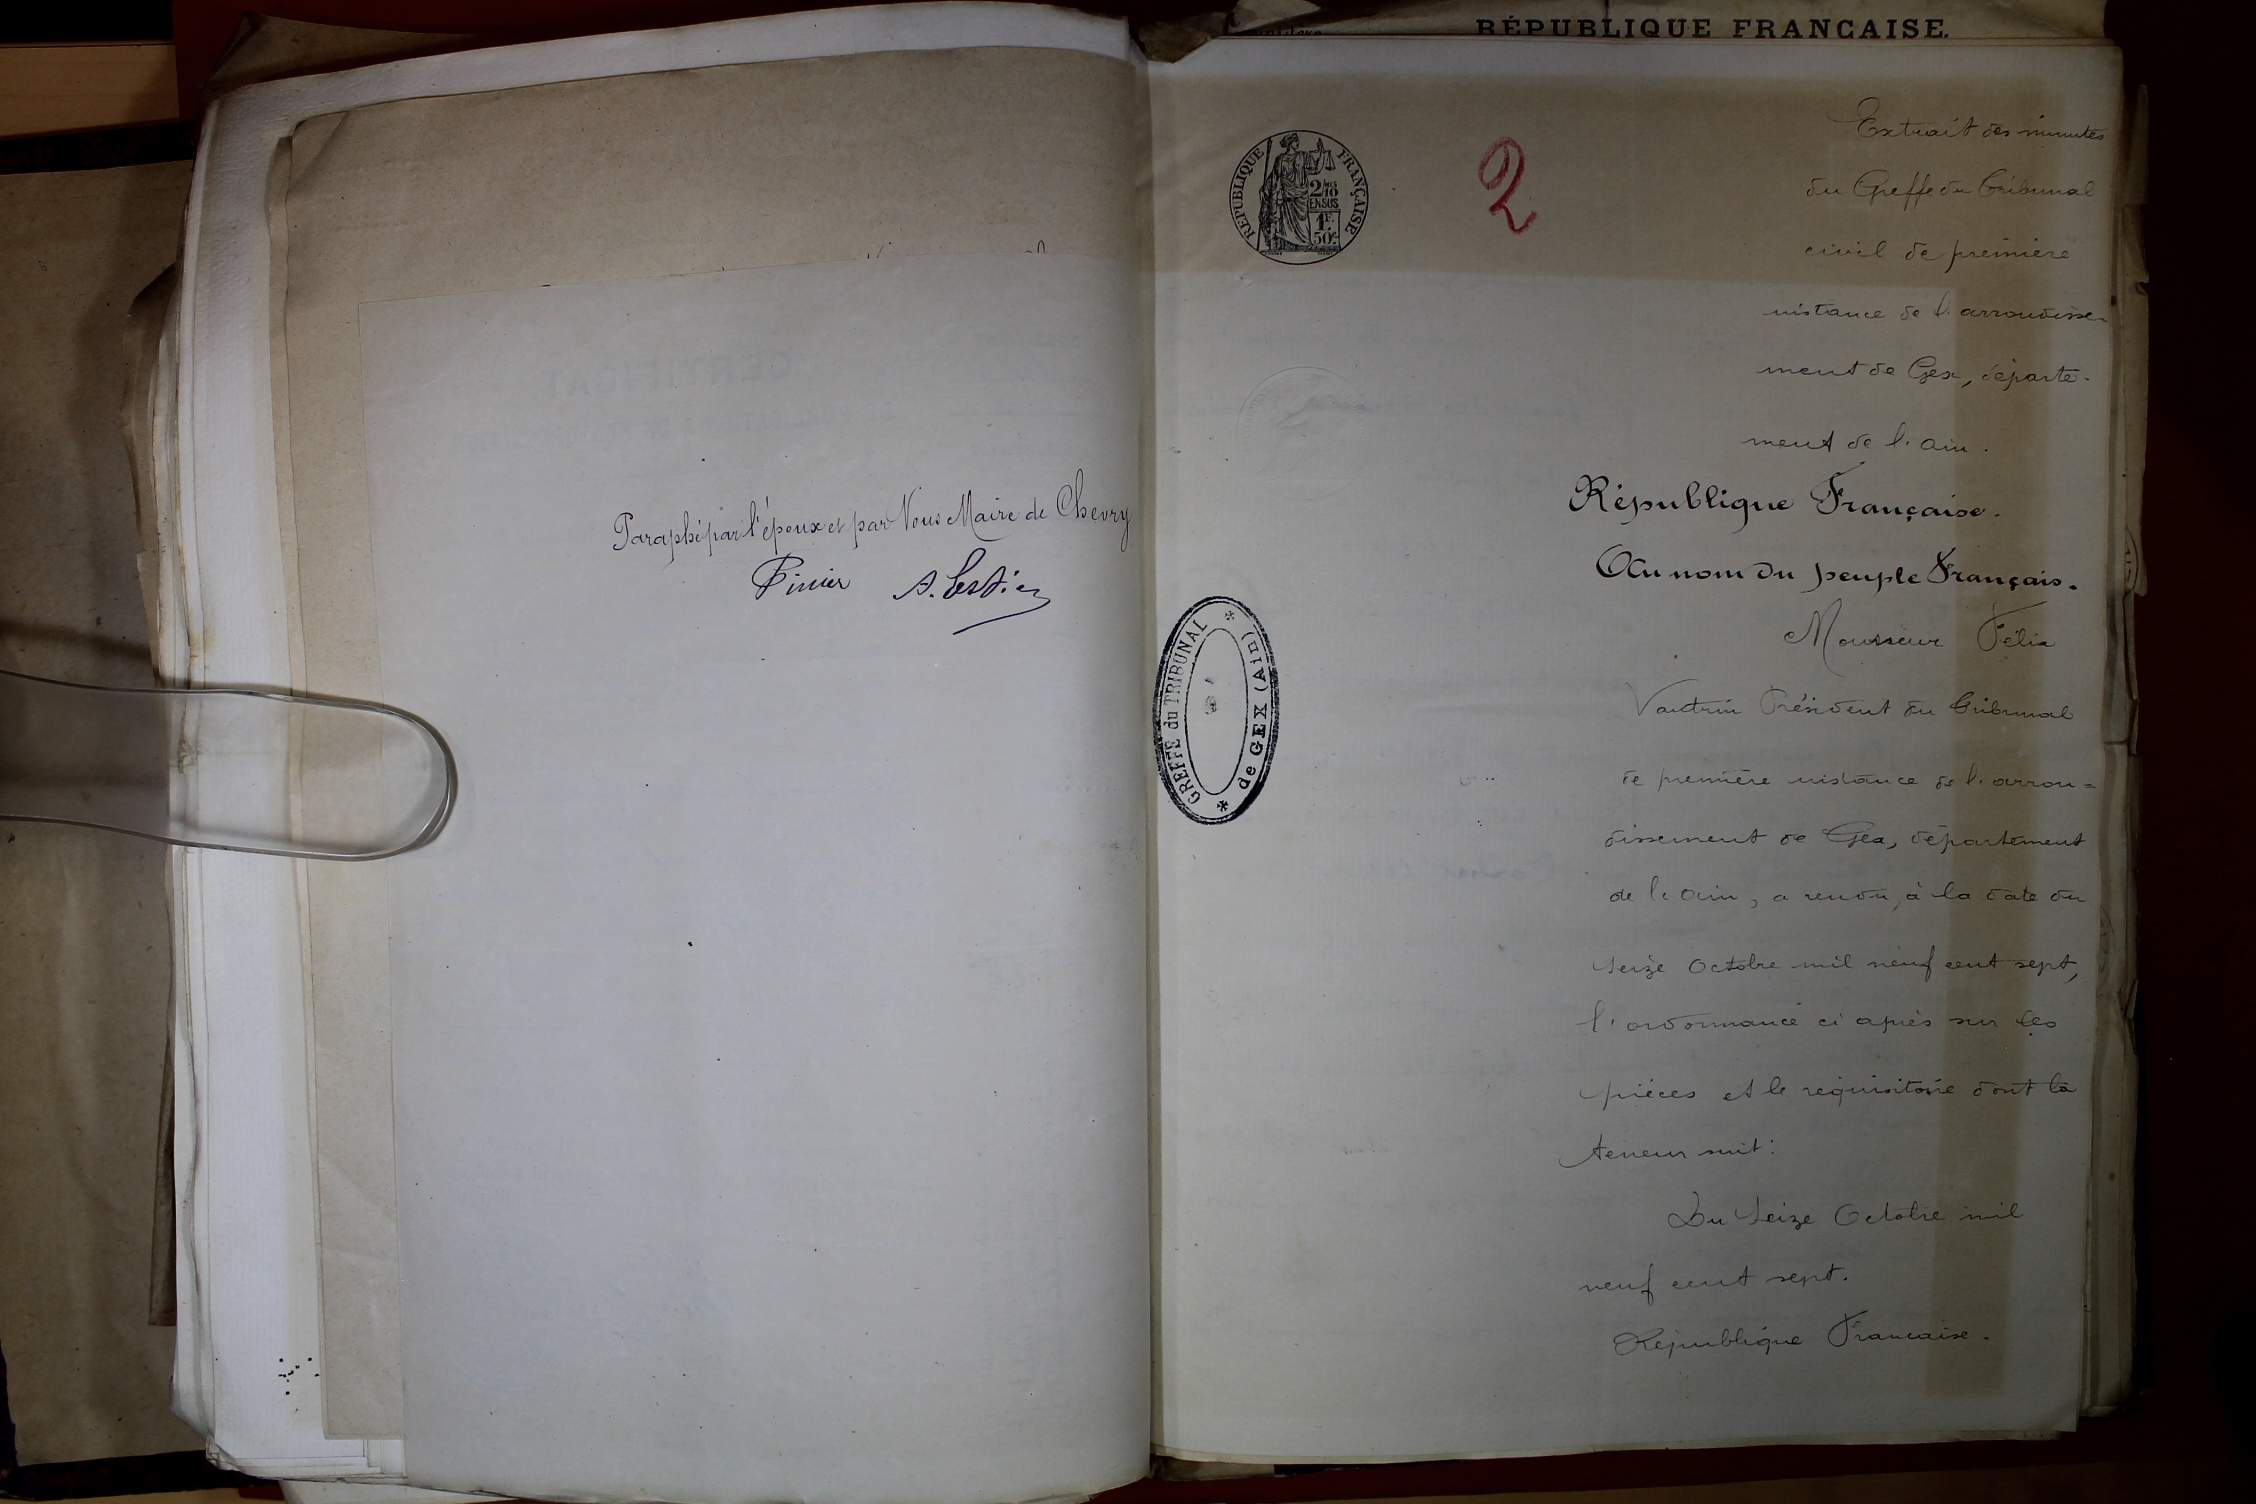 Paraphé par l'époux et par Nous Maire de Chevry
Pinier A. Lestien
RÉPUBLIQUE FRANÇAISE.
RÉPUBLIQUE FRANÇAISE
2/10
EN SUS
1F.
50c
2
Extrait des minutes
du Greffe du Tribunal
civil de première
instance de l'arrondisse-
ment de Gex, départe-
ment de l'Ain.
République Française.
Au nom du peuple Français.
Monsieur Félix
Vautrin Président du Tribunal
de première instance de l'arron=
dissement de Gex, département
de l'Ain, a rendu, à la date du
seize Octobre mil neuf cent sept,
l'ordonnance ci après sur les
pièces et le réquisitoire dont la
teneur suit:
Du Seize Octobre mil
neuf cent sept.
République Française.
GREFFE du TRIBUNAL
de GEX (AIN)